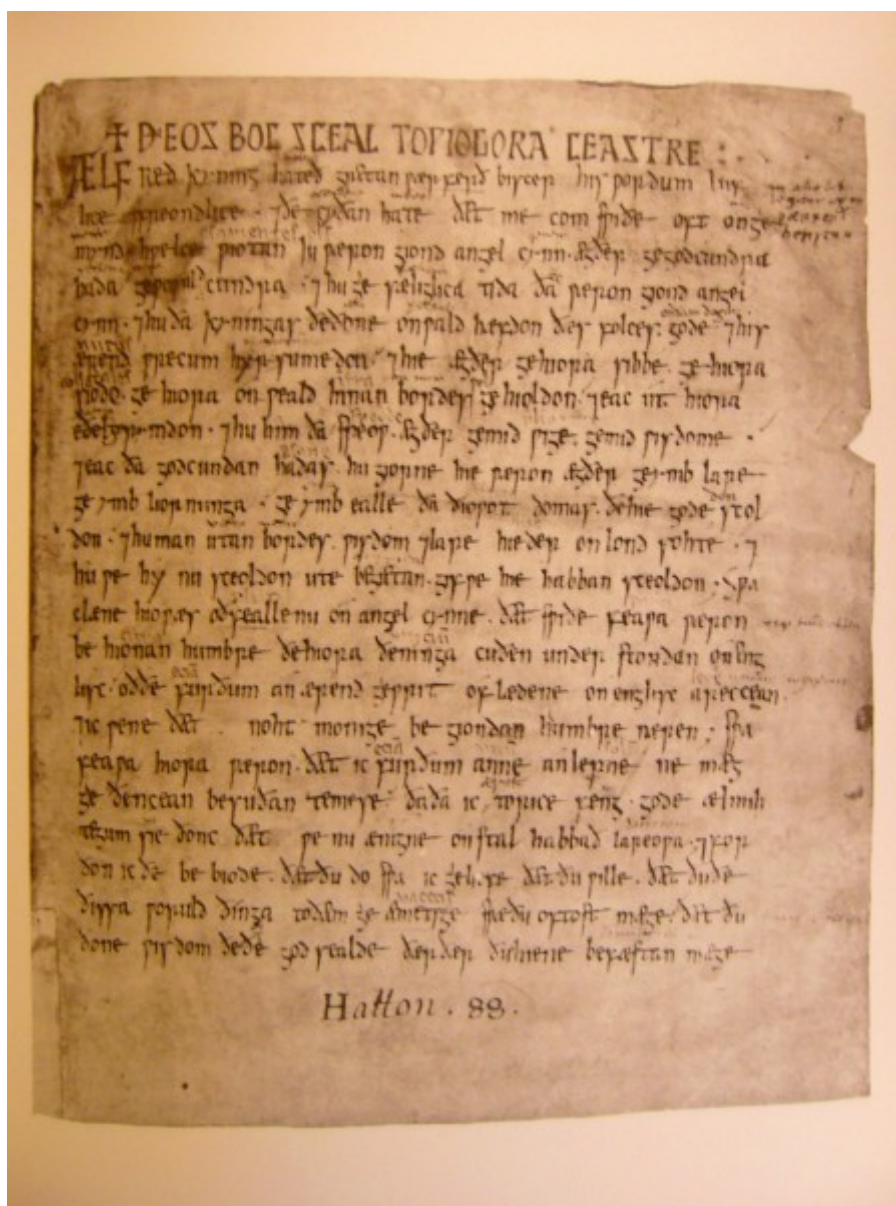 ✝ ÐEOS BOC SCEAL TO ǷIOGORA CEASTRE :
ÆLFRED kyning hateð gretan ƿærferð biscep his ƿordum luf
lice ⁊ freondlice · ⁊ ðe cyðan hate ðæt me com sƿiðe oft on ge
mynd hƿelce ƿiotan iu ƿæron giond angel cynn · ægðer ge godcundra
hada ge ƿoruldcundra · ⁊ hu gesæliglica tida ða ƿæron giond angel
cynn · ⁊ hu ða kyningas ðe ðone onƿald hæfdon ðæs folces · gode ⁊ his
ærendƿrecum hersumedon · ⁊ hie ægðer ge hiora sibbe · ge hiora
siodo · ge hiora onƿeald innan bordes gehioldon · ⁊ eac ut hiora
eðel rymdon · ⁊ hu him ða speoƿ · ægðer ge mid ƿige · ge mid ƿisdome ·
⁊ eac ða godcundan hadas · hu giorne hie ƿæron ægðer ge ymb lare
ge ymb liornunga · ge ymb ealle ða ðioƿot domas · ðe hie gode scol
don · ⁊ hu man utan bordes · ƿisdom ⁊ lare hieder on lond sohte · ⁊
hu ƿe hy nu sceoldon ute begietan · gif ƿe hie habban sceoldon · sƿa
clæne hio ƿæs oðfeallenu on angel cynne · ðæt sƿiðe feaƿa ƿæron
be hionan humbre ðe hiora ðeninga cuðen under stondan on eng
lisc · oððe furðum an ærend geƿrit of lædene on englisc areccean
⁊ ic ƿene ðæt noht monige be giondan humbre næren · sƿa
feaƿa hiora ƿæron · ðæt ic furðum anne anlepne ne mæg
ge ðencean be suðan temese ða ða ic to rice feng · gode ælmih
tegum sie ðonc ðæt ƿe nu ænigne on stal habbað lareoƿa · ⁊ for
ðon ic ðe be biode · ðæt ðu do sƿa ic geliefe ðæt ðu ƿille · ðæt ðu ðe
ðissa ƿoruld ðinga to ðæm ge æmetige sƿæ ðu oftost mæge · ðæt ðu
ðone ƿisdom ðe ðe god sealde ðær ðær ðu hiene befæstan mæge
Hatton . 88 .